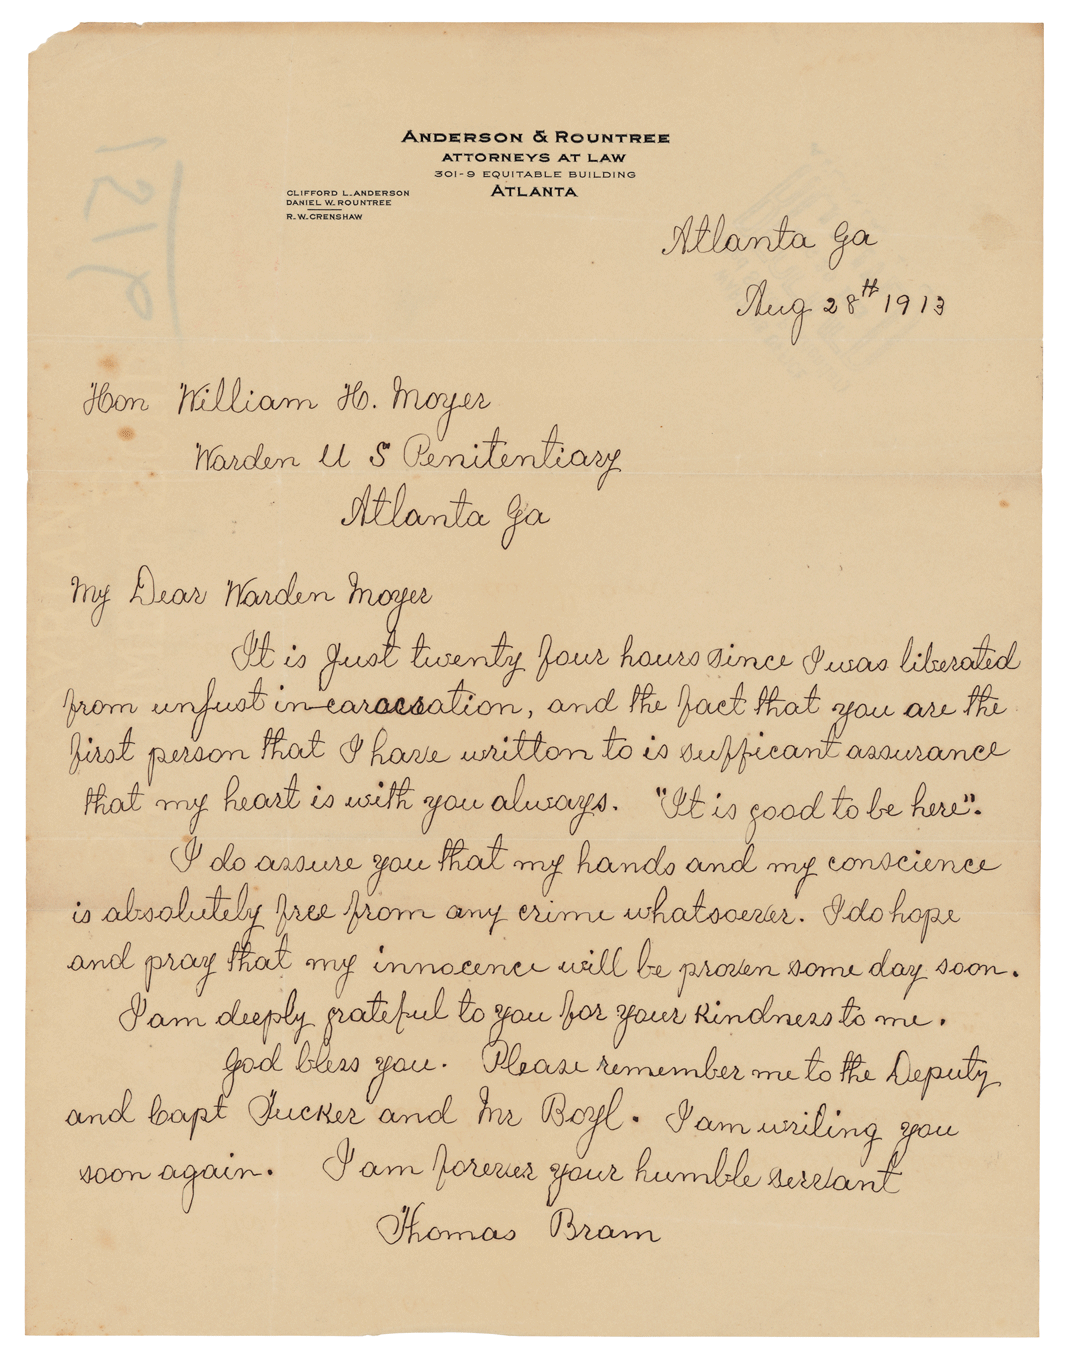 ANDERSON & ROUNTREE
ATTORNEYS AT LAW
301-9 EQUITABLE BUILDING
ATLANTA
CLIFFORD L. ANDERSON
DANIEL W. ROUNTREE
R. W. CRENSHAW
Atlanta Ga
Aug 28th 1913
Hon William H. Moyer
Warden U S Penitentiary
Atlanta Ga
My Dear Warden Moyer
It is Just twenty four hours since I was liberated
from unjust in-carceration, and the fact that you are the
first person that I have written to is sufficant assurance
that my heart is with you always. "It is good to be here".
I do assure you that my hands and my conscience
is absolutely free from any crime whatsoever. I do hope
and pray that my innocence will be proven some day soon.
I am deeply grateful to you for your kindness to me.
God bless you. Please remember me to the Deputy
and Capt Tucker and Mr Boyl. I am writing you
soon again. I am forever your humble servant
Thomas Bram